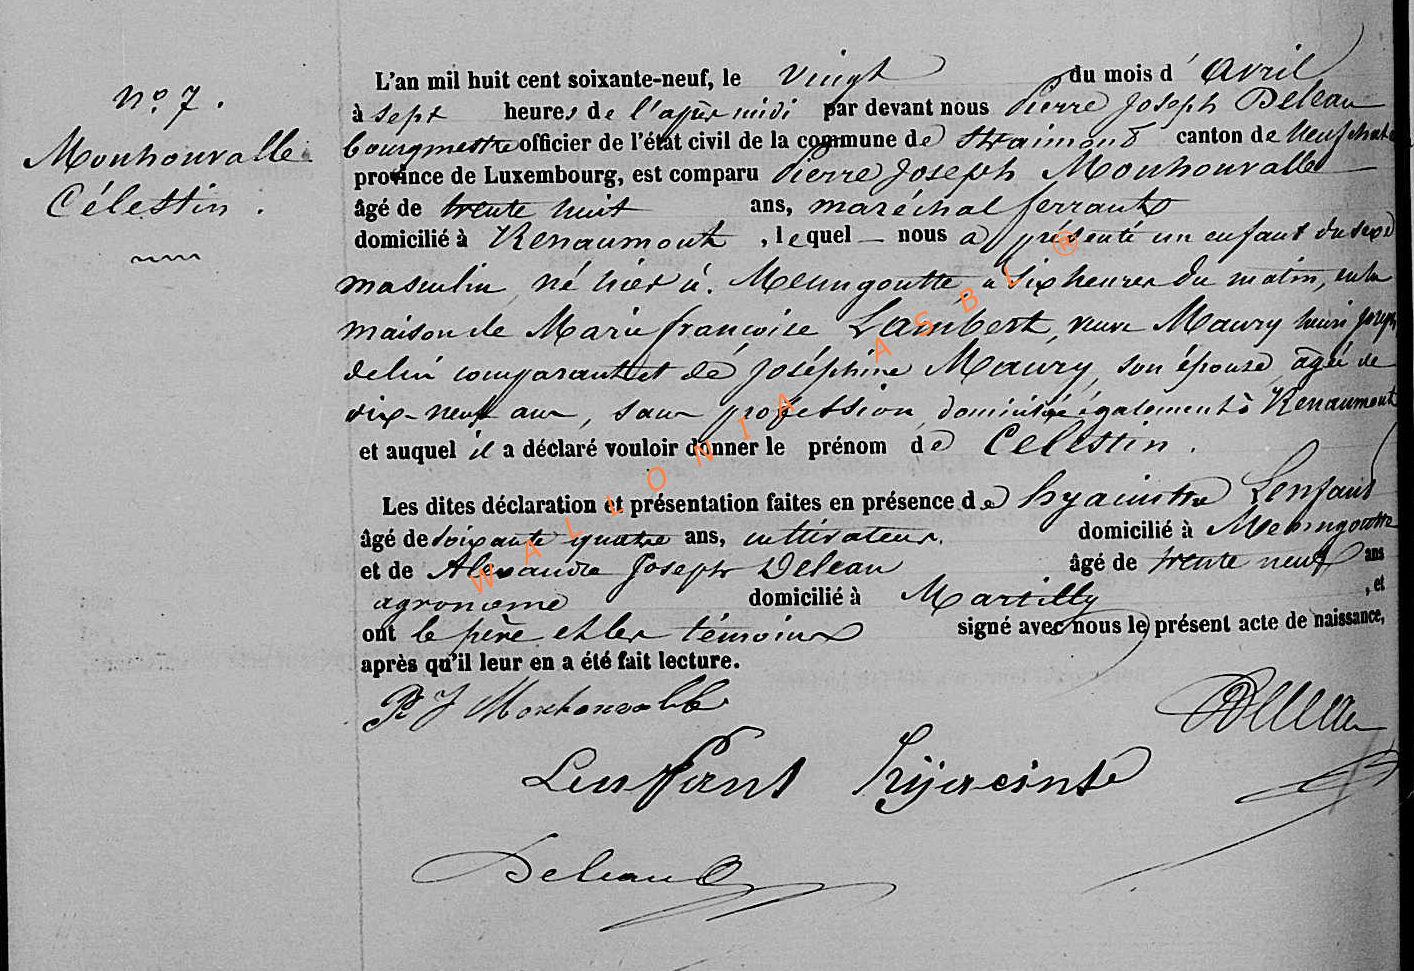 N.º 7.
Monhonvalle
Célestin.
L'an mil huit cent soixante-neuf, le vingt du mois d'Avril
à sept heures de l'après midi par devant nous Pierre Joseph Deleau
bourgmestre officier de l'état civil de la commune de Straimont canton de Neufchate
province de Luxembourg, est comparu Pierre Joseph Monhonvalle
âgé de trente huit ans, maréchal ferrant
domicilié à Renaumont, lequel nous a présenté un enfant du sexe
masculin, né hier à Menugoutte, à six heures du matin, en la
maison de Marie françoise Lambert, veuve Maury henri Joseph
de lui comparant et de Joséphine Maury, son épouse, âgée de
dix-neuf ans, sans profession, domiciliée également à Renaumont
et auquel il a déclaré vouloir donner le prénom de Célestin.
Les dites déclaration et présentation faites en présence de hyacinthe Lenfant
âgé de soixante quatre ans, cultivateur, domicilié à Menugoutte
et de Alexandre Joseph Deleau âgé de trente neuf ans
agronome domicilié à Martilly, et
ont le père et les témoins signé avec nous le présent acte de naissance,
après qu'il leur en a été fait lecture.
P J Monhonvalle
Deleau
Lenfant hyacinte
Deleau
WALLONIA ASBL ®